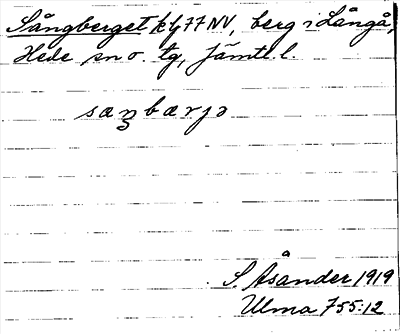 Sångberget kbf 77 NV, berg i Långå,
Hede sn o. tg, Jämtl. l.
sæŋbærjə
S. Åsander 1919
Ulma 755:12